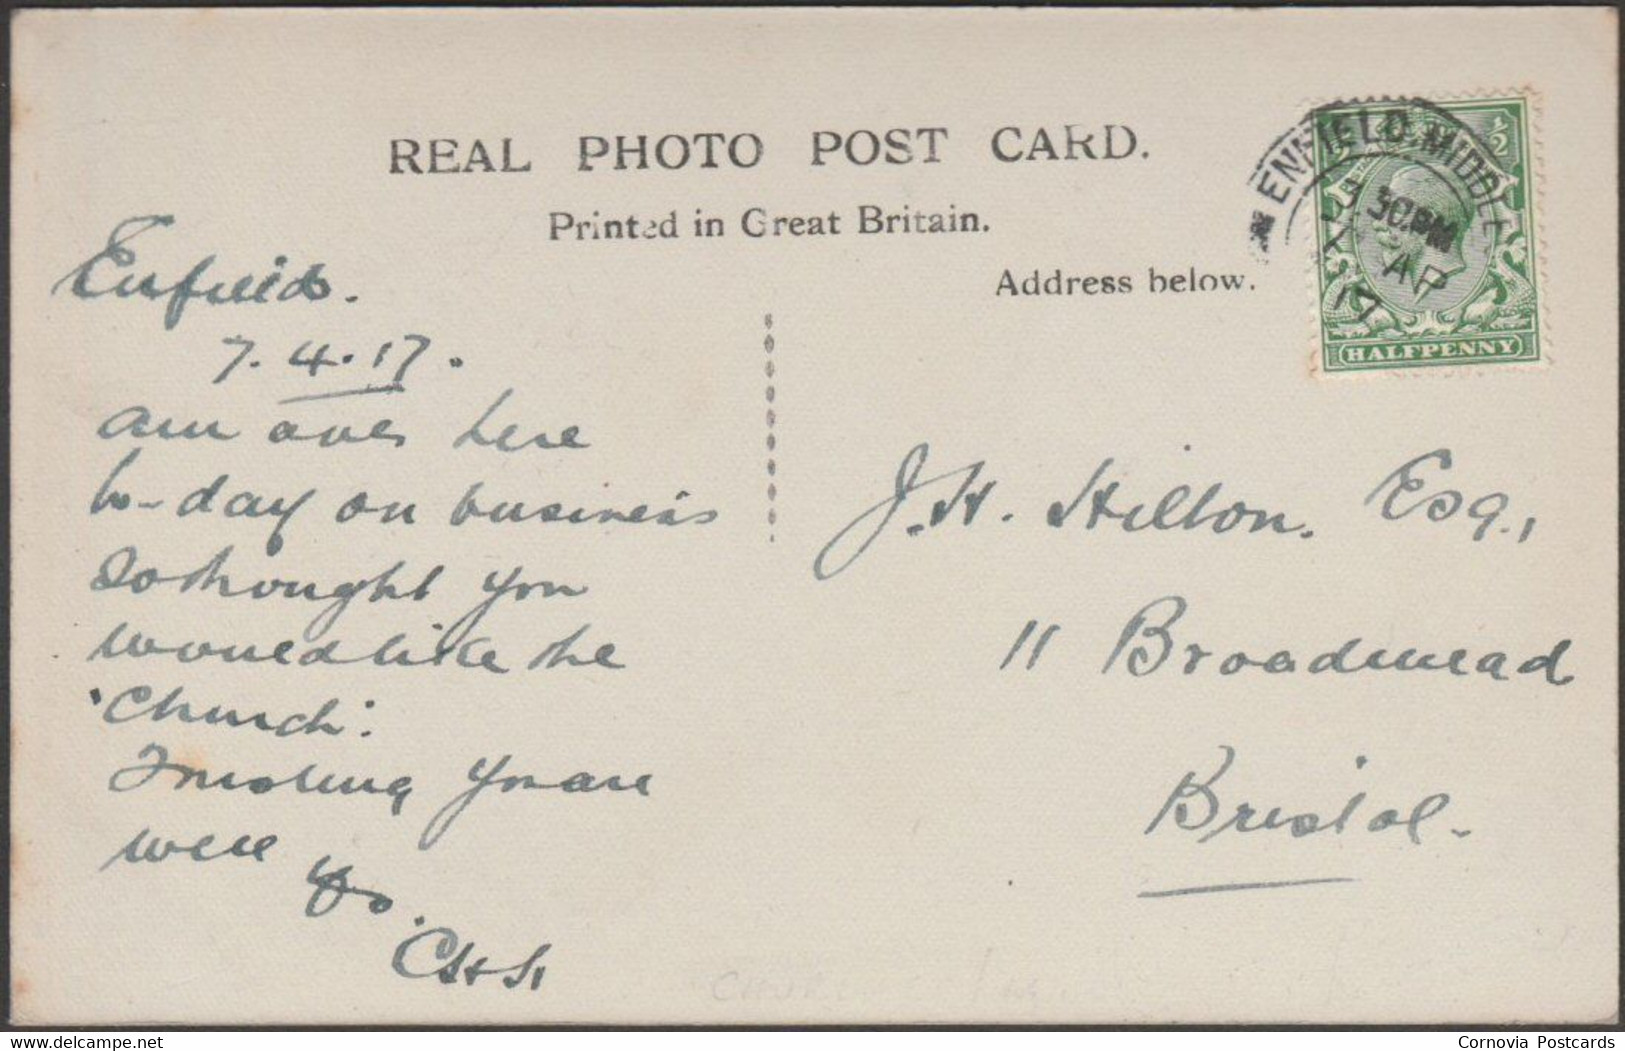 REAL PHOTO POST CARD.
Printed in Great Britain.
Address below.
ENFIELD. MIDDLE
3 30.PM
7 AP
17
½
HALFPENNY
Enfield.
7.4.17.
am over here
to-day on business
so thought you
would like the
'Church'.
Trusting you are
well
Yrs.
J. H. Hilton. Esq.,
11 Broadmead
Bristol.
www.delcampe.net
Cornovia Postcards